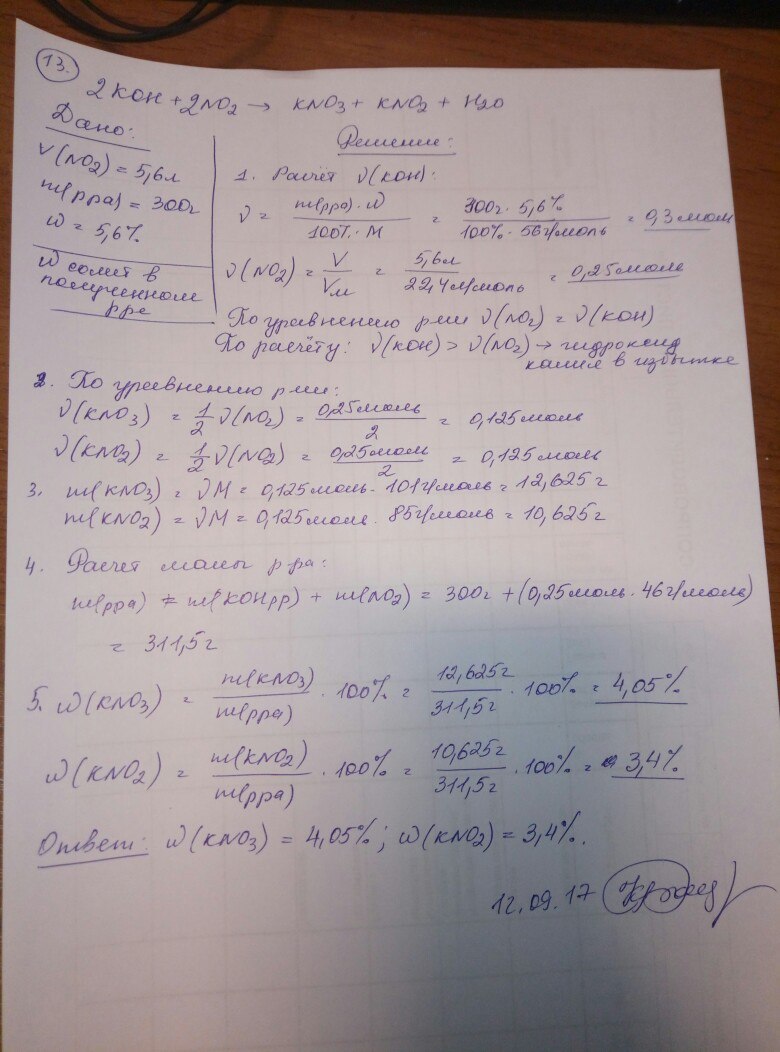 13.
2KOH + 2NO2 → KNO3 + KNO2 + H2O
Дано:
V(NO2) = 5,6л
m(рра) = 300г
ω = 5,6%
ω солей в
полученном
рре
Решение:
1. Расчёт ν(KOH):
ν = m(рра)·ω / 100%·M = 300г·5,6% / 100%·56г/моль = 0,3моль
ν(NO2) = V / Vм = 5,6л / 22,4л/моль = 0,25моль
По уравнению рции ν(NO2) = ν(KOH)
По расчёту: ν(KOH) > ν(NO2) → гидроксид
калия в избытке
2. По уравнению рции:
ν(KNO3) = 1/2 ν(NO2) = 0,25моль / 2 = 0,125моль
ν(KNO2) = 1/2 ν(NO2) = 0,25моль / 2 = 0,125моль
3. m(KNO3) = νM = 0,125моль · 101г/моль = 12,625г
m(KNO2) = νM = 0,125моль · 85г/моль = 10,625г
4. Расчет массы р ра:
m(рра) = m(KOHрр) + m(NO2) = 300г + (0,25моль · 46г/моль)
= 311,5г
5. ω(KNO3) = m(KNO3) / m(рра) · 100% = 12,625г / 311,5г · 100% = 4,05%
ω(KNO2) = m(KNO2) / m(рра) · 100% = 10,625г / 311,5г · 100% = 3,4%
Ответ: ω(KNO3) = 4,05%; ω(KNO2) = 3,4%.
12.09.17